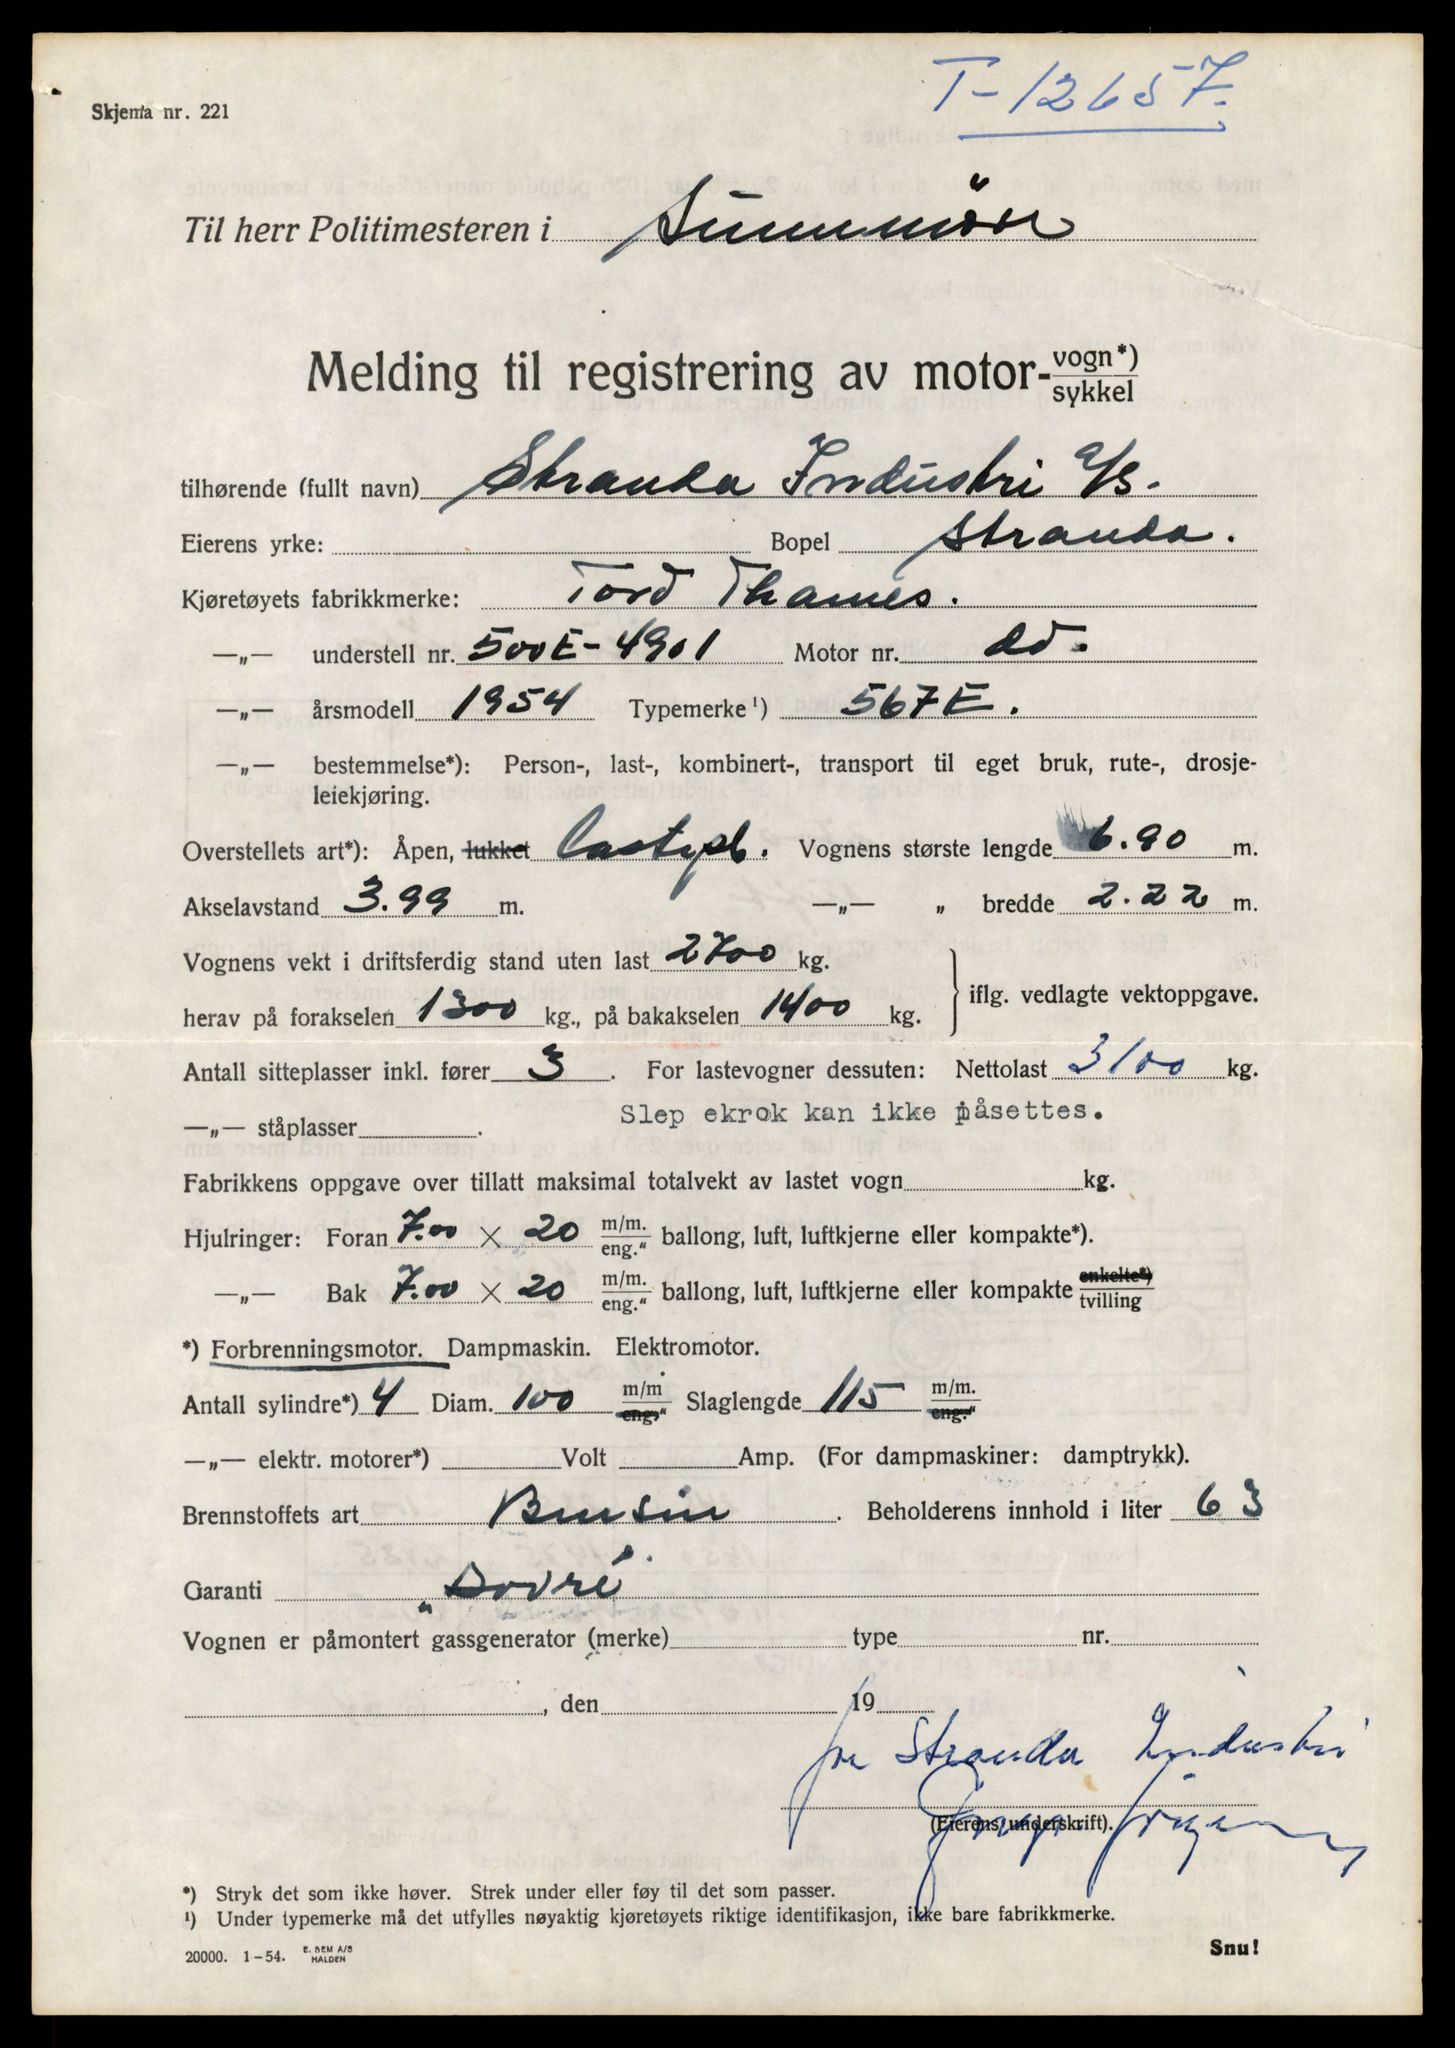 T-12657.
Skjema nr. 221
Til herr Politimesteren i Sunnmöre
Melding til registrering av motor- vogn*) / sykkel
tilhørende (fullt navn) Stranda Industri a/s.
Eierens yrke: Bopel Stranda.
Kjøretøyets fabrikkmerke: Ford Thames.
—„— understell nr. 500E-4901 Motor nr. do.
—„— årsmodell 1954 Typemerke ¹) 567E.
—„— bestemmelse*): Person-, last-, kombinert-, transport til eget bruk, rute-, drosje-
leiekjøring.
Overstellets art*): Åpen, lukket lastepl. Vognens største lengde 6.90 m.
Akselavstand 3.99 m. —„— „ bredde 2.22 m.
Vognens vekt i driftsferdig stand uten last 2700 kg.
herav på forakselen 1300 kg., på bakakselen 1400 kg. } iflg. vedlagte vektoppgave.
Antall sitteplasser inkl. fører 3. For lastevogner dessuten: Nettolast 3100 kg.
—„— ståplasser . Slep ekrok kan ikke påsettes.
Fabrikkens oppgave over tillatt maksimal totalvekt av lastet vogn kg.
Hjulringer: Foran 7.00 × 20 m/m. / eng.“ ballong, luft, luftkjerne eller kompakte*).
—„— Bak 7.00 × 20 m/m. / eng.“ ballong, luft, luftkjerne eller kompakte enkelte*) / tvilling
*) Forbrenningsmotor. Dampmaskin. Elektromotor.
Antall sylindre*) 4 Diam. 100 m/m / eng.“ Slaglengde 115 m/m. / eng.“
—„— elektr. motorer*) Volt Amp. (For dampmaskiner: damptrykk).
Brennstoffets art Bensin . Beholderens innhold i liter 63
Garanti „Dovre"
Vognen er påmontert gassgenerator (merke) type nr.
, den 19
for Stranda Industri
(Eierens underskrift).
*) Stryk det som ikke høver. Strek under eller føy til det som passer.
¹) Under typemerke må det utfylles nøyaktig kjøretøyets riktige identifikasjon, ikke bare fabrikkmerke.
20000. 1-54. E. SEM A/S HALDEN Snu!